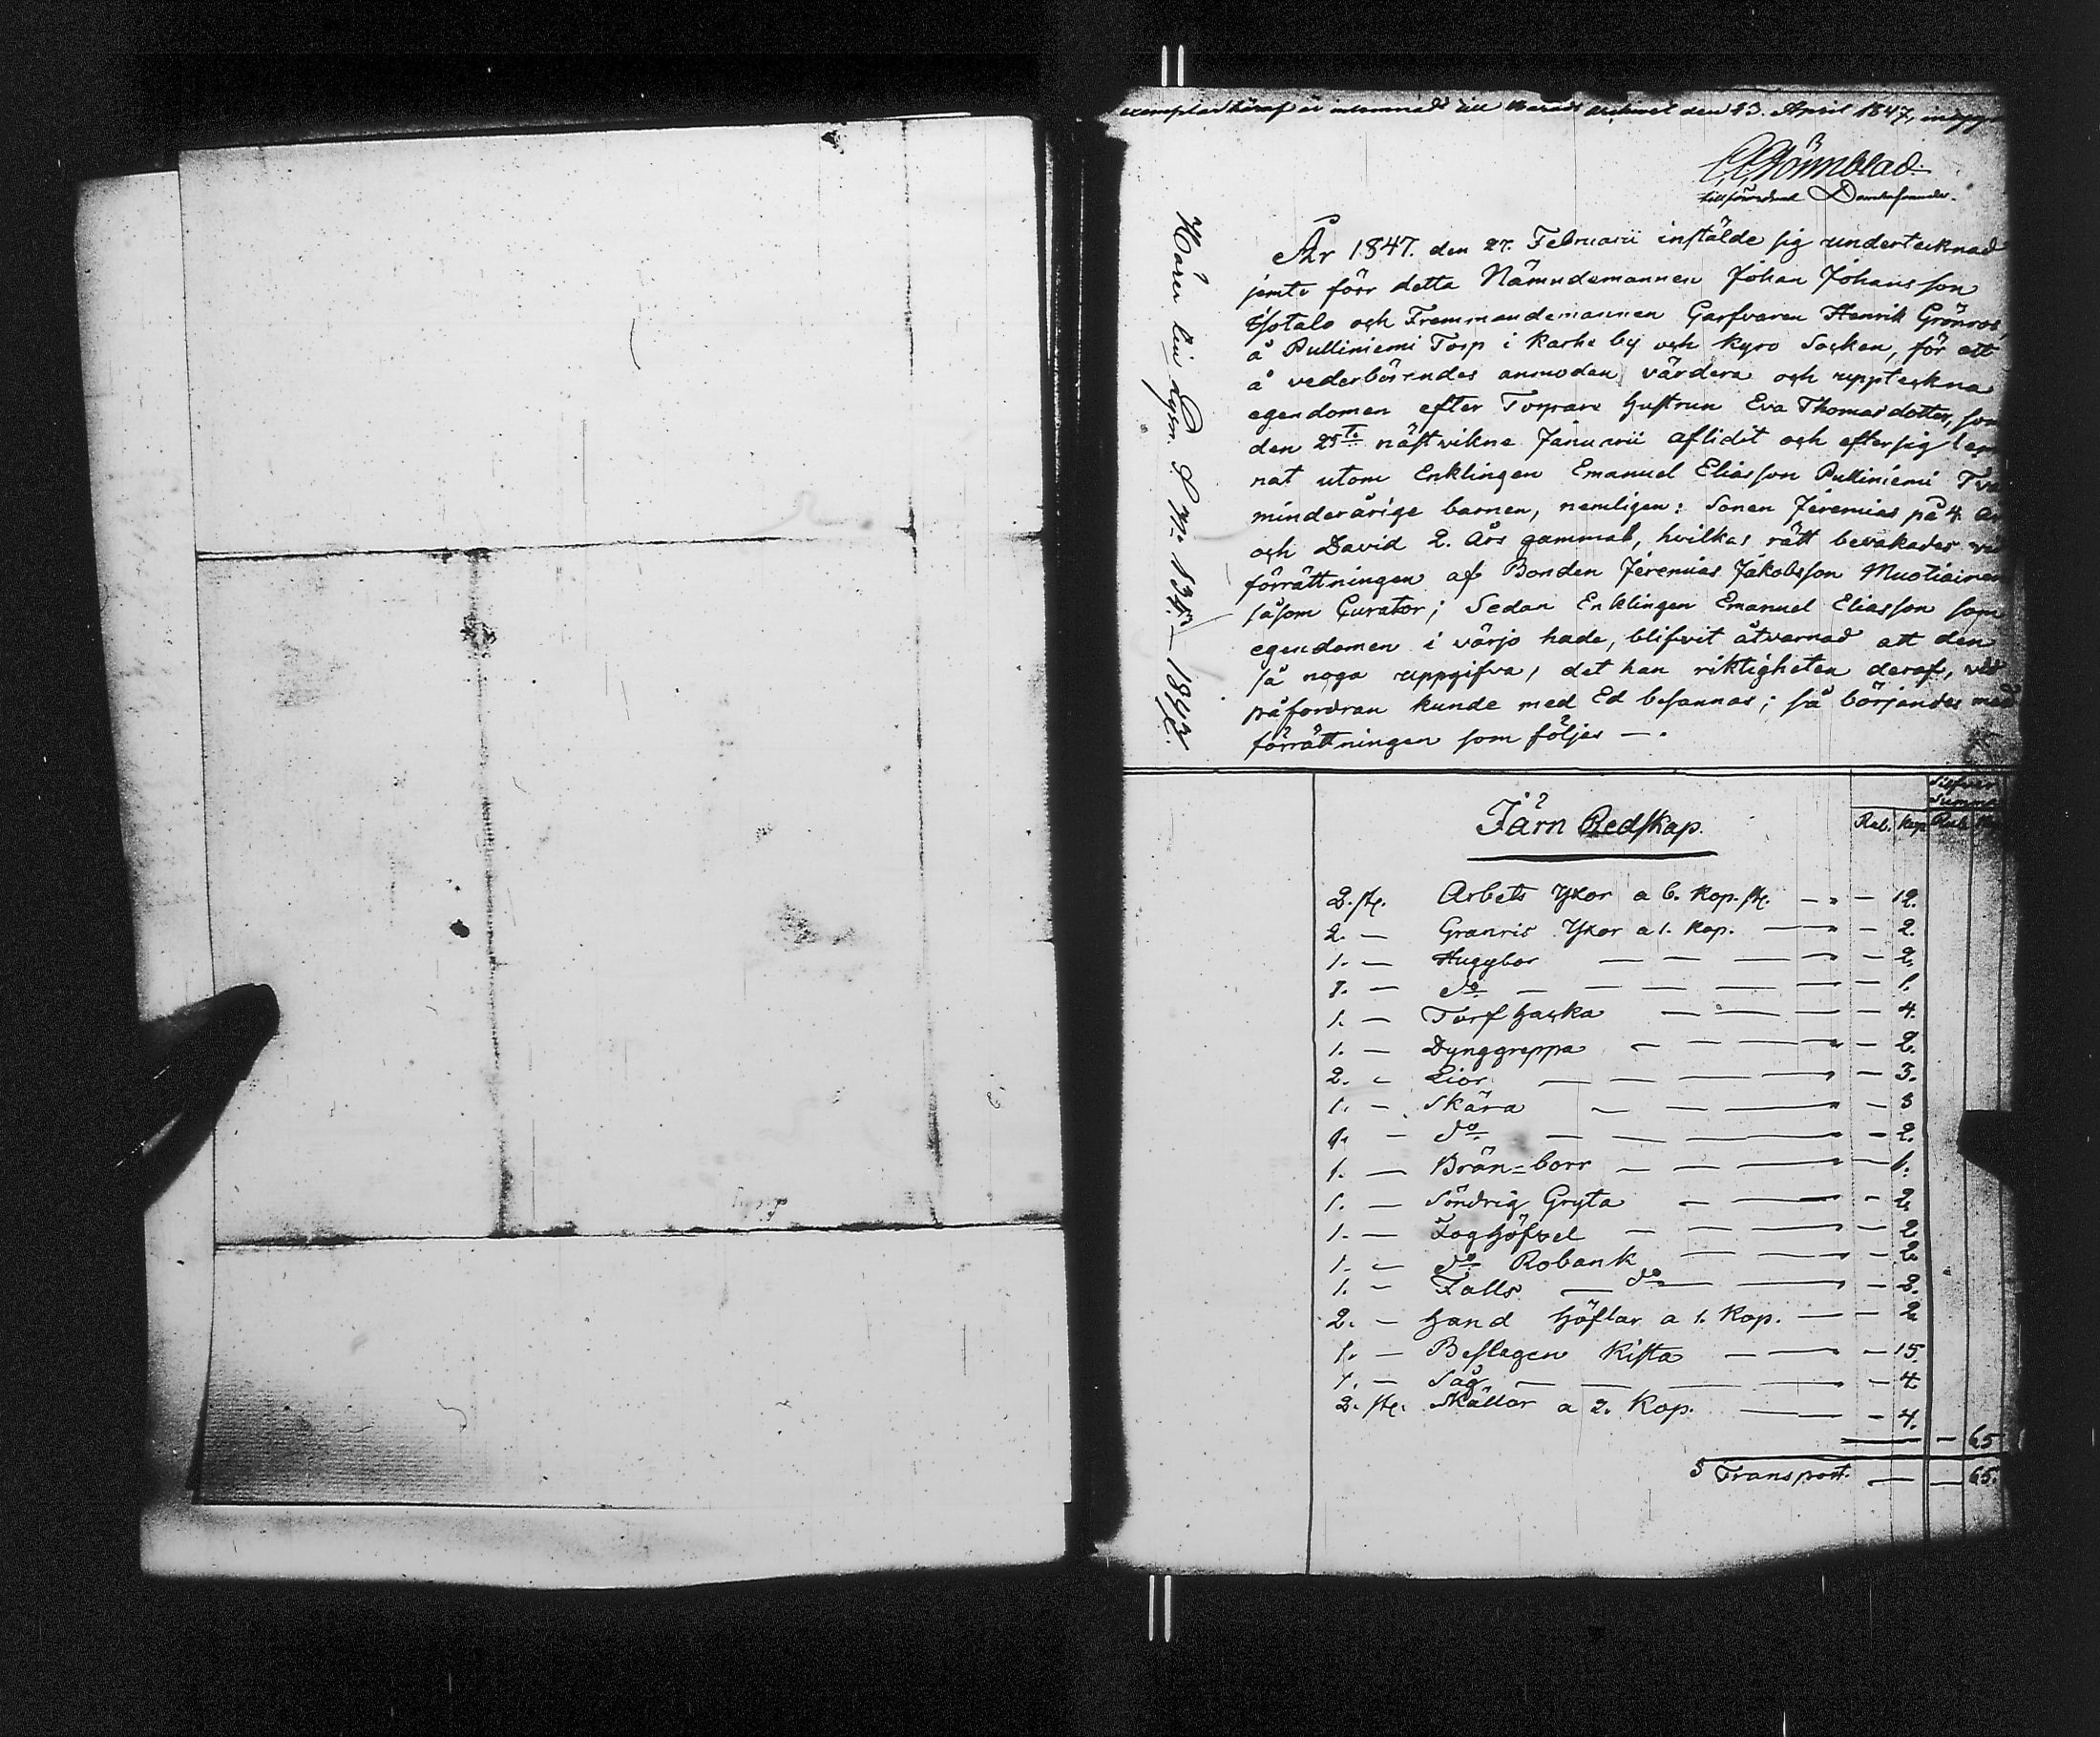 exemplar häraf är inlemnadt till Härads archivet den 23. April 1847, intygar
C. Grönnblad.
tillförordnad Domhafvande.
År 1847. den 27. Februarii instälde sig undertecknad
jemte förr detta Nämndemannen Johan Johansson
Isotalo och Fremmandemannen Garfvaren Henrik Grönroos,
å Pulliniemi Torp i Karhe by och Kyro Socken, för att
å vederbörandes anmodan, värdera och uppteckna
egendomen efter Torpare hustrun Eva Thomasdotter, som
den 25te nästvikne Januarii aflidit och efter sig lem
nat utom Enklingen Emanuel Eliasson Pulliniemi Tva
minderårige barnen, nemligen: Sonen Jeremias på 4. år
och David 2. års gammal, hvilkas rätt bevakades vid
förrättningen af Bonden Jeremias Jakobsson Muotiainen
såsom Curator; Sedan Enklingen Emanuel Eliasson som
egendomen i värjo hade, blifvit åtvarnad att den
så noga uppgifva, det han riktigheten deraf, vid
påfordran kunde med Ed besannas; så börjandes med
förrättningen som följer —.
Silfver
Summa
Järn Redskap.
Rub. Kop Rub. Ko
2. st. Arbets Yxor a 6. Kop. st. — — 12.
2. — Granris Yxor a 1. Kop. — — 2.
1. — — — — — 2.
1. — do — — — — — 1.
1. — Torf hacka — — — — 4.
1. — Dynggreppa — — — — 2.
2. — Lior — — — — 3.
1. — Skära — — — — 3
1. — do — — — — 2.
1. — Brän=borr — — — — 1.
1. — Söndrig Gryta — — — 2.
1. — Foghöfvel — — — — 2
1. — do Robank — — — 2.
1. — Falls — do — — — 2.
2. — hand höflar a 1. Kop. — — 2
1. — Beslagen Kista — — — 15.
1. — Såg — — — — — 4
2. st. Skällor a 2. Kop. — — 4.
— 65
S Transport. — — 65.